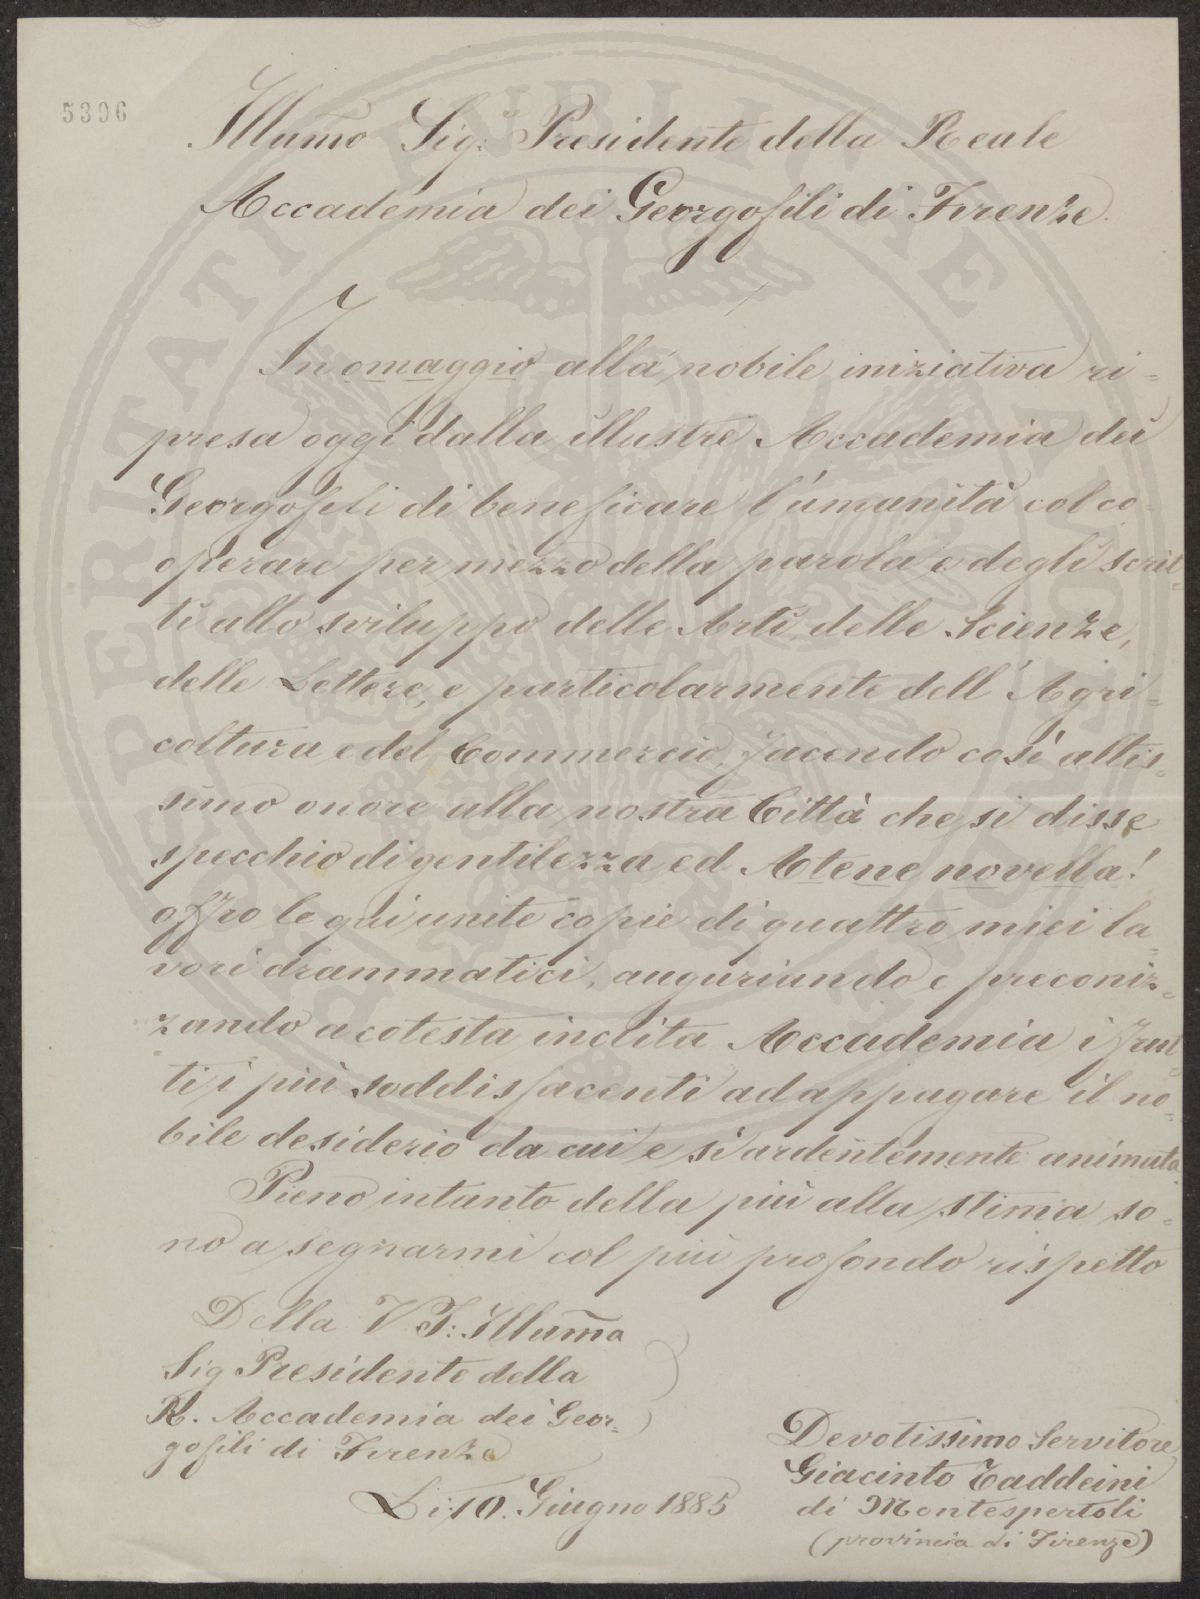 5396
Illumo Sig: Presidente della Reale
Accademia dei Georgofili di Firenze.
In omaggio alla nobile iniziativa ri=
presa oggi dalla illustre Accademia dei
Georgofili di beneficare l'umanità col co=
operare per mezzo della parola e degli scrit=
ti allo sviluppo delle Arti, delle Scienze,
delle Lettere, e particolarmente dell'Agri=
coltura e del Commercio, facendo così altis=
simo onore alla nostra Città che si disse
specchio di gentilezza ed Atene novella!
offro le qui unite copie di quattro miei la=
vori drammatici, auguriando e preconiz=
zando a cotesta inclita Accademia i frut=
ti i più soddisfacenti ad appagare il no=
bile desiderio da cui e sì ardentemente animata.
Pieno intanto della più alla stima so=
no a segnarmi col più profondo rispetto
Della V. S: Illuma
Sig Presidente della
R. Accademia dei Geor=
gofili di Firenze
Li 10. Giugno 1885
Devotissimo Servitore
Giacinto Taddeini
di Montespertoli
(provincia di Firenze)
PROSPERITATI PUBLICAE AUGENDAE